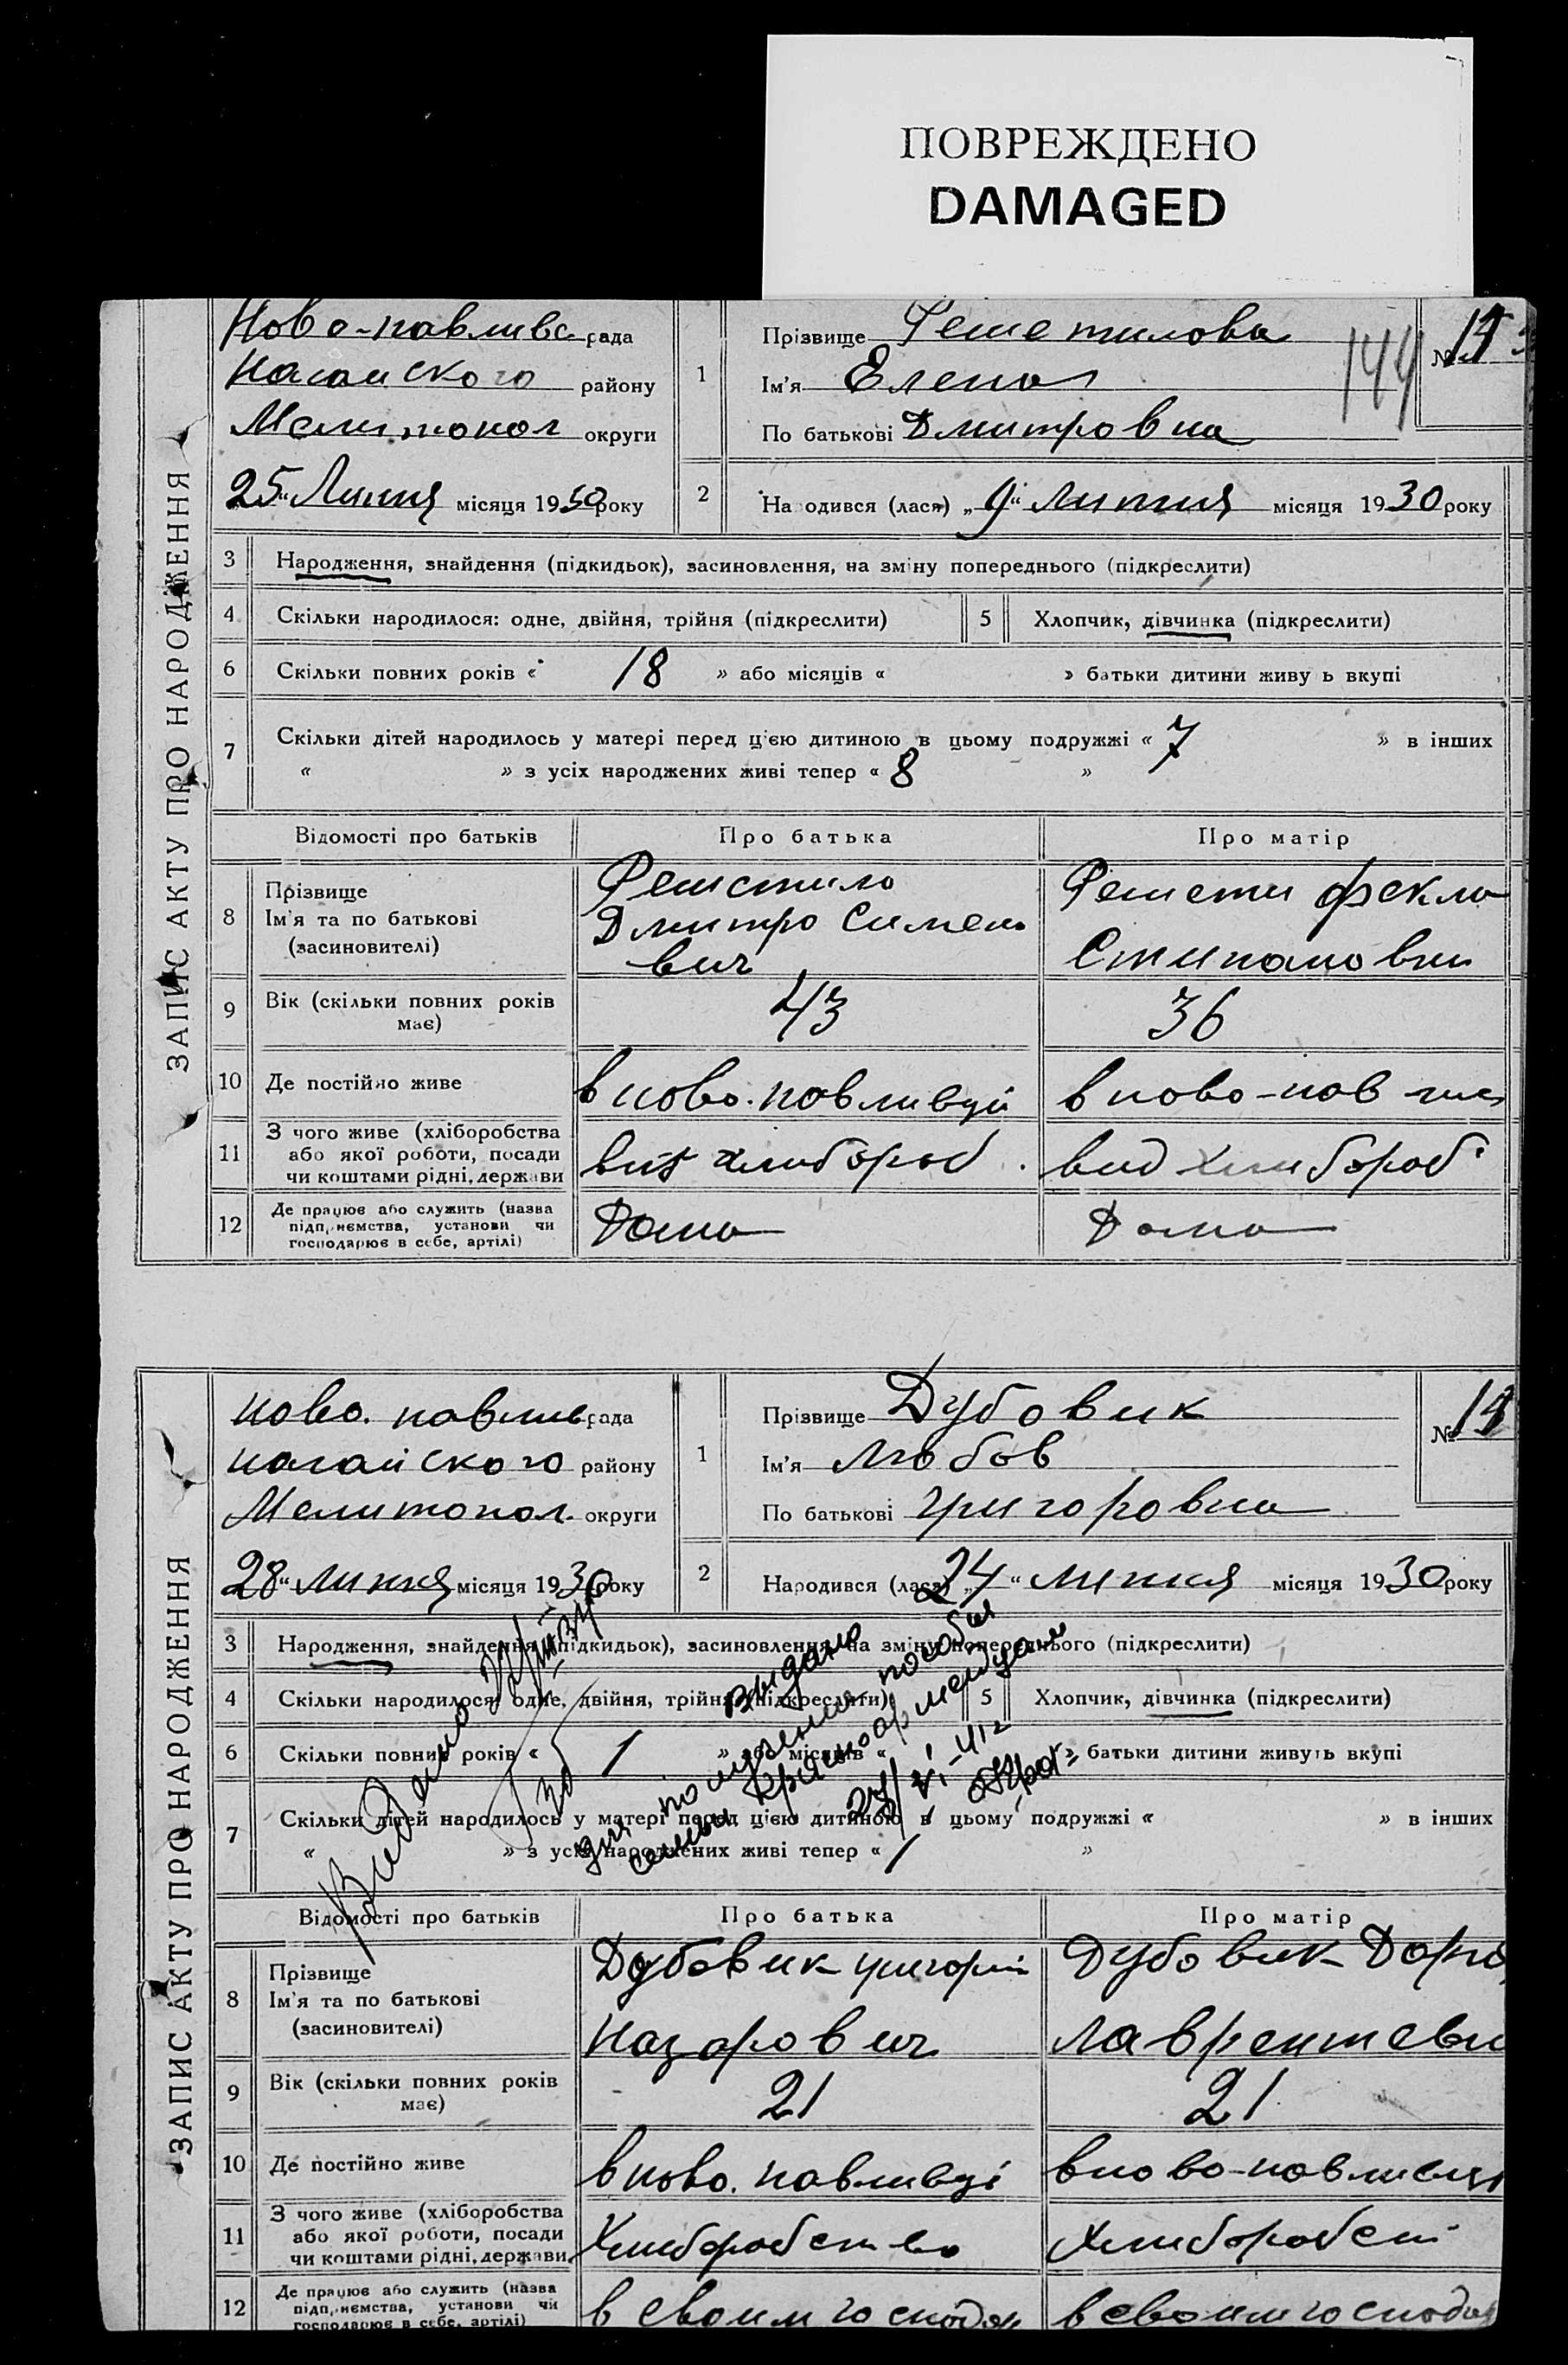 ПОВРЕЖДЕНО
DAMAGED
ЗАПИС АКТУ ПРО НАРОДЖЕННЯ
Ново-павливс рада
Нагайского району
Мелитопол округи
25 „ Липня місяця 1930 року
1
Прізвище Решетилова
Ім'я Елена
По батькові Дмитровна
144
№ 14
2
Народився (лася) „ 9 “ липня місяця 1930 року
3 Народження, знайдення (підкидьок), засиновлення, на зміну попереднього (підкреслити)
4 Скільки народилося: одне, двійня, трійня (підкреслити) 5 Хлопчик, дівчинка (підкреслити)
6 Скільки повних років « 18 » або місяців « » батьки дитини живу ь вкупі
7 Скільки дітей народилось у матері перед цією дитиною в цьому подружжі « 7 » в інших
« » з усіх народжених живі тепер « 8 »
Відомості про батьків Про батька Про матір
8 Прізвище
Ім'я та по батькові
(засиновителі)
Решетило
Дмитро Симено
вич
Решети Фекла
Стипановна
9 Вік (скільки повних років
має)
43 36
10 Де постійно живе в ново-павливци в ново-пав
11 З чого живе (хліборобства
або якої роботи, посади
чи коштами рідні, держави
вид хлибороб вид хлибороб
12 Де працює або служить (назва
підприємства, установи чи
господарює в себе, артілі)
Дома Дома
ЗАПИС АКТУ ПРО НАРОДЖЕННЯ
ново. павлив рада
нагайского району
Мелитопол. округи
28 “ липня місяця 1930 року
1
Прізвище Дубовик
Ім'я Любов
По батькові Григоровна
№ 14
2
Народився (лася) „ 24 “ липня місяця 1930 року
3 Народження, знайдення (підкидьок), засиновлення, на зміну попереднього (підкреслити)
4 Скільки народилося: одне, двійня, трійня (підкреслити) 5 Хлопчик, дівчинка (підкреслити)
6 Скільки повних років « 1 » або місяців « » батьки дитини живуть вкупі
7 Скільки дітей народилось у матері перед цією дитиною в цьому подружжі « » в інших
« » з усіх народжених живі тепер « 1 »
Видано
Выдано
для получения пособия
семьи красноармейцам
27/VI-41г
Відомості про батьків Про батька Про матір
8 Прізвище
Ім'я та по батькові
(засиновителі)
Дубовик григорій
Назарович
Дубовик Дария
Лаврентевн
9 Вік (скільки повних років
має)
21 21
10 Де постійно живе в ново. павливці в ново-павливци
11 З чого живе (хліборобства
або якої роботи, посади
чи коштами рідні, держави
Хлиборобство Хлиборобст
12 Де працює або служить (назва
підприємства, установи чи
господарює в себе, артілі)
в своим господар в своим господар